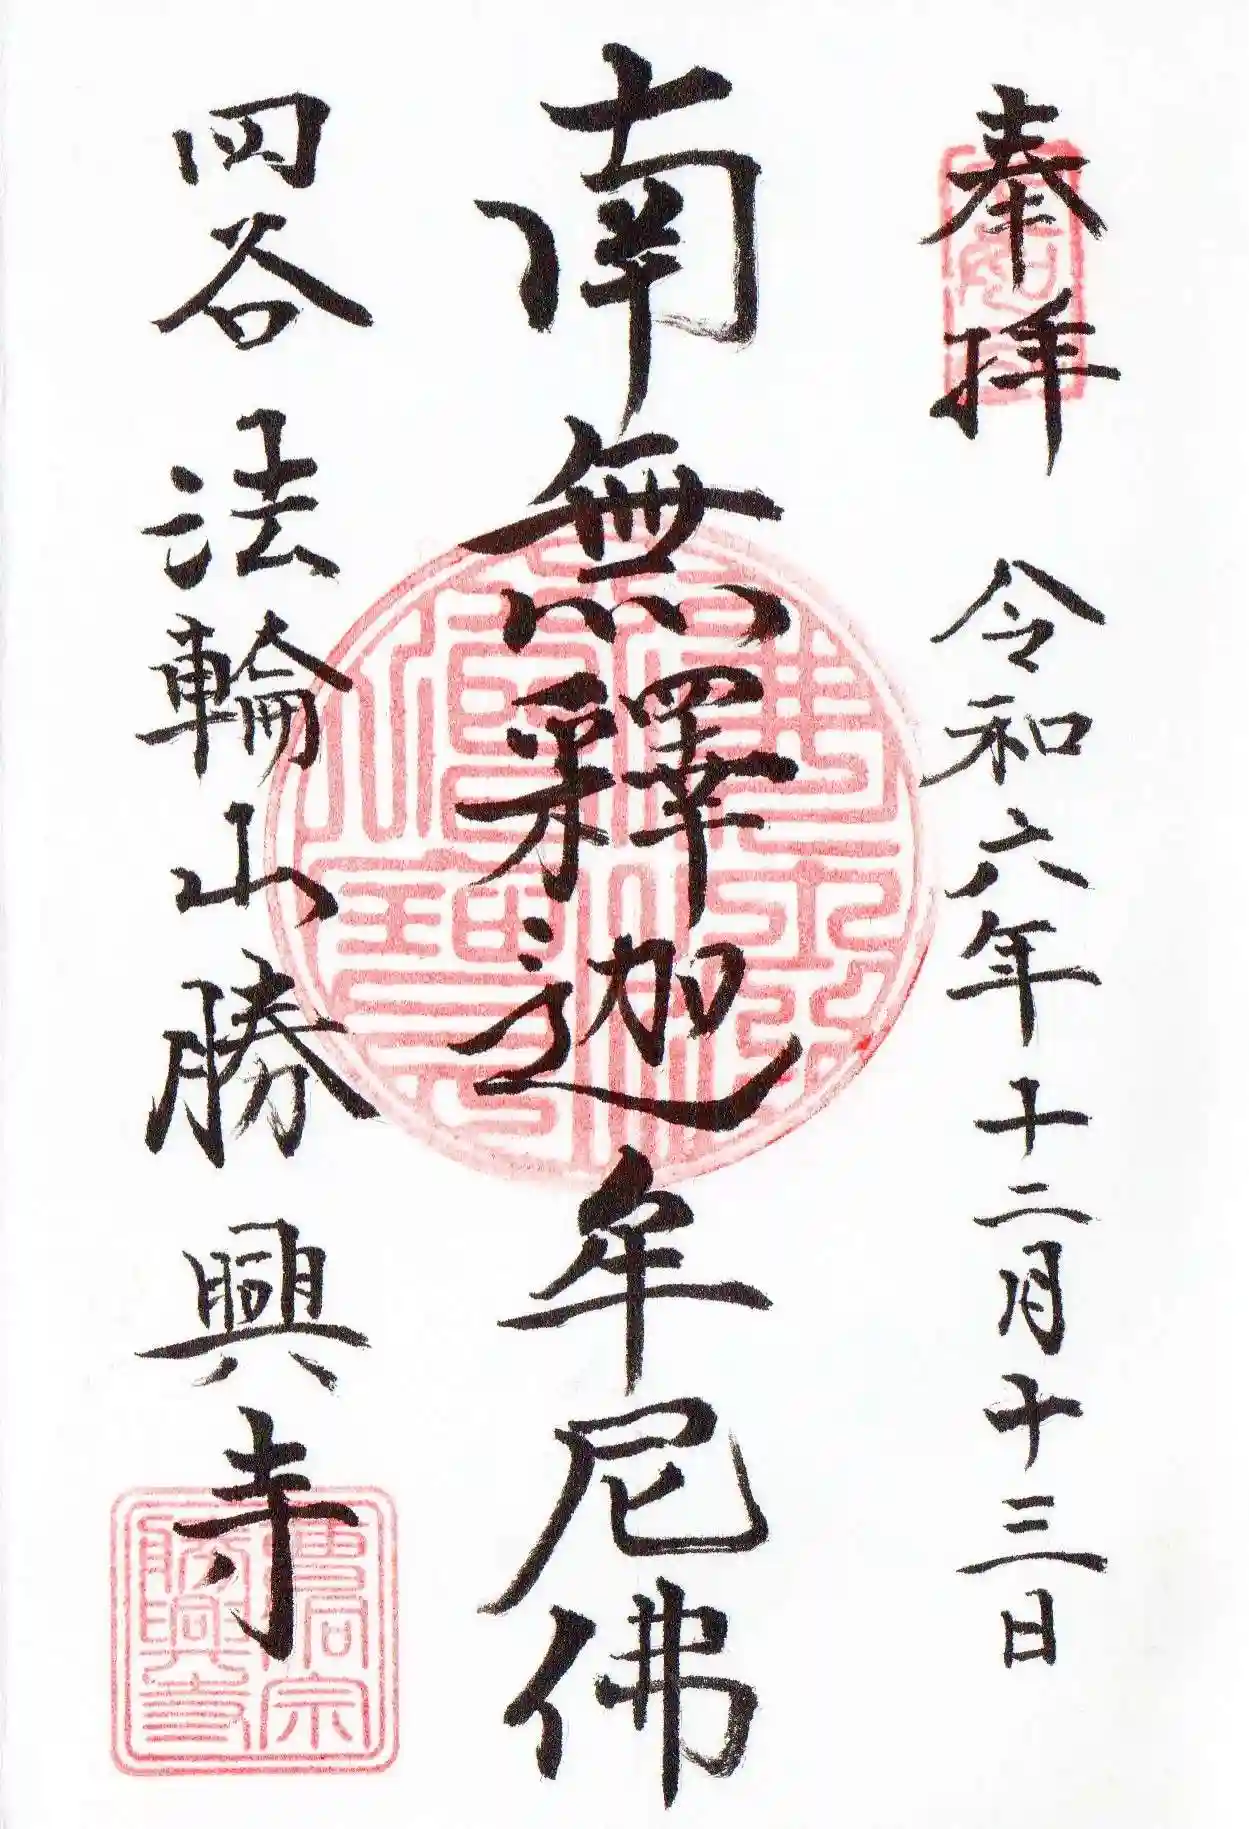 奉拝 令和六年十二月十三日
南無釋迦牟尼佛
四谷 法輪山勝興寺
曹洞宗
勝興寺